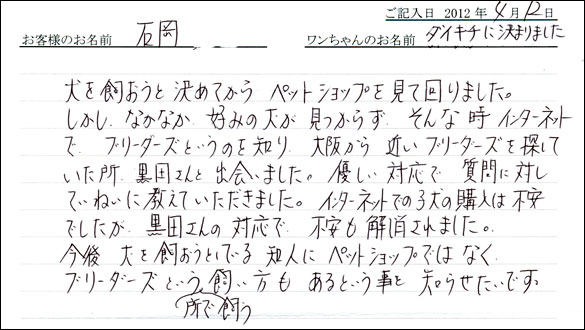 ご記入日 2012年4月12日
お客様のお名前 石岡 ワンちゃんのお名前 ダイキチに決まりました
犬を飼おうと決めてから ペットショップを見て回りました。
しかし、なかなか 好みの犬が 見つからず、そんな時 インターネット
で、ブリーダーズというのを知り、大阪から 近い ブリーダーズを探して
いた所 黒田さんと 出会いました。優しい 対応で 質問に対し
ていねいに 教えていただきました。インターネットでの犬の購入は 不安
でしたが、黒田さんの 対応で、不安も 解消されました。
今後 犬を飼おうとしている 知人に ペットショップでは なく、
ブリーダーズという 飼い方も あるという事を 知らせたいです。
所で飼う